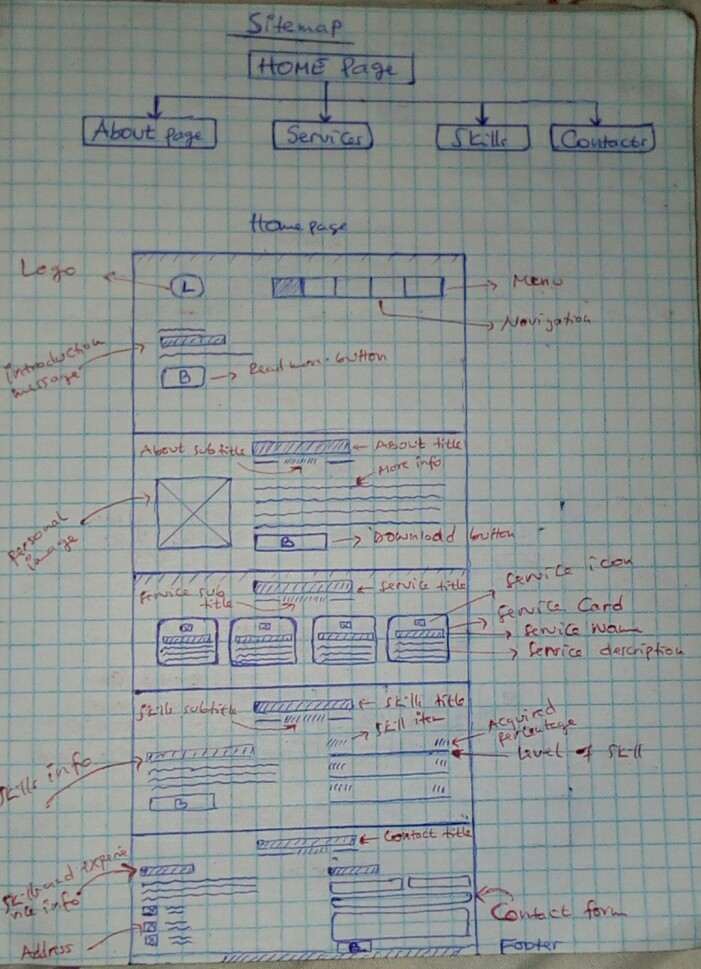 Sitemap
HOME Page
About page
Services
Skills
Contacts
Home page
Logo
L
Menu
Navigation
introduction
message
B
Read more button
About subtitle
About title
More info
Personal
image
B
Download button
Service sub
title
Service title
Service icon
Service Card
Service Name
Service description
Skills subtitle
Skills title
Skill item
Acquired
percentage
Level of skill
Skills info
B
Contact title
Skill and experie
nce info
Contact form
Address
B
Footer